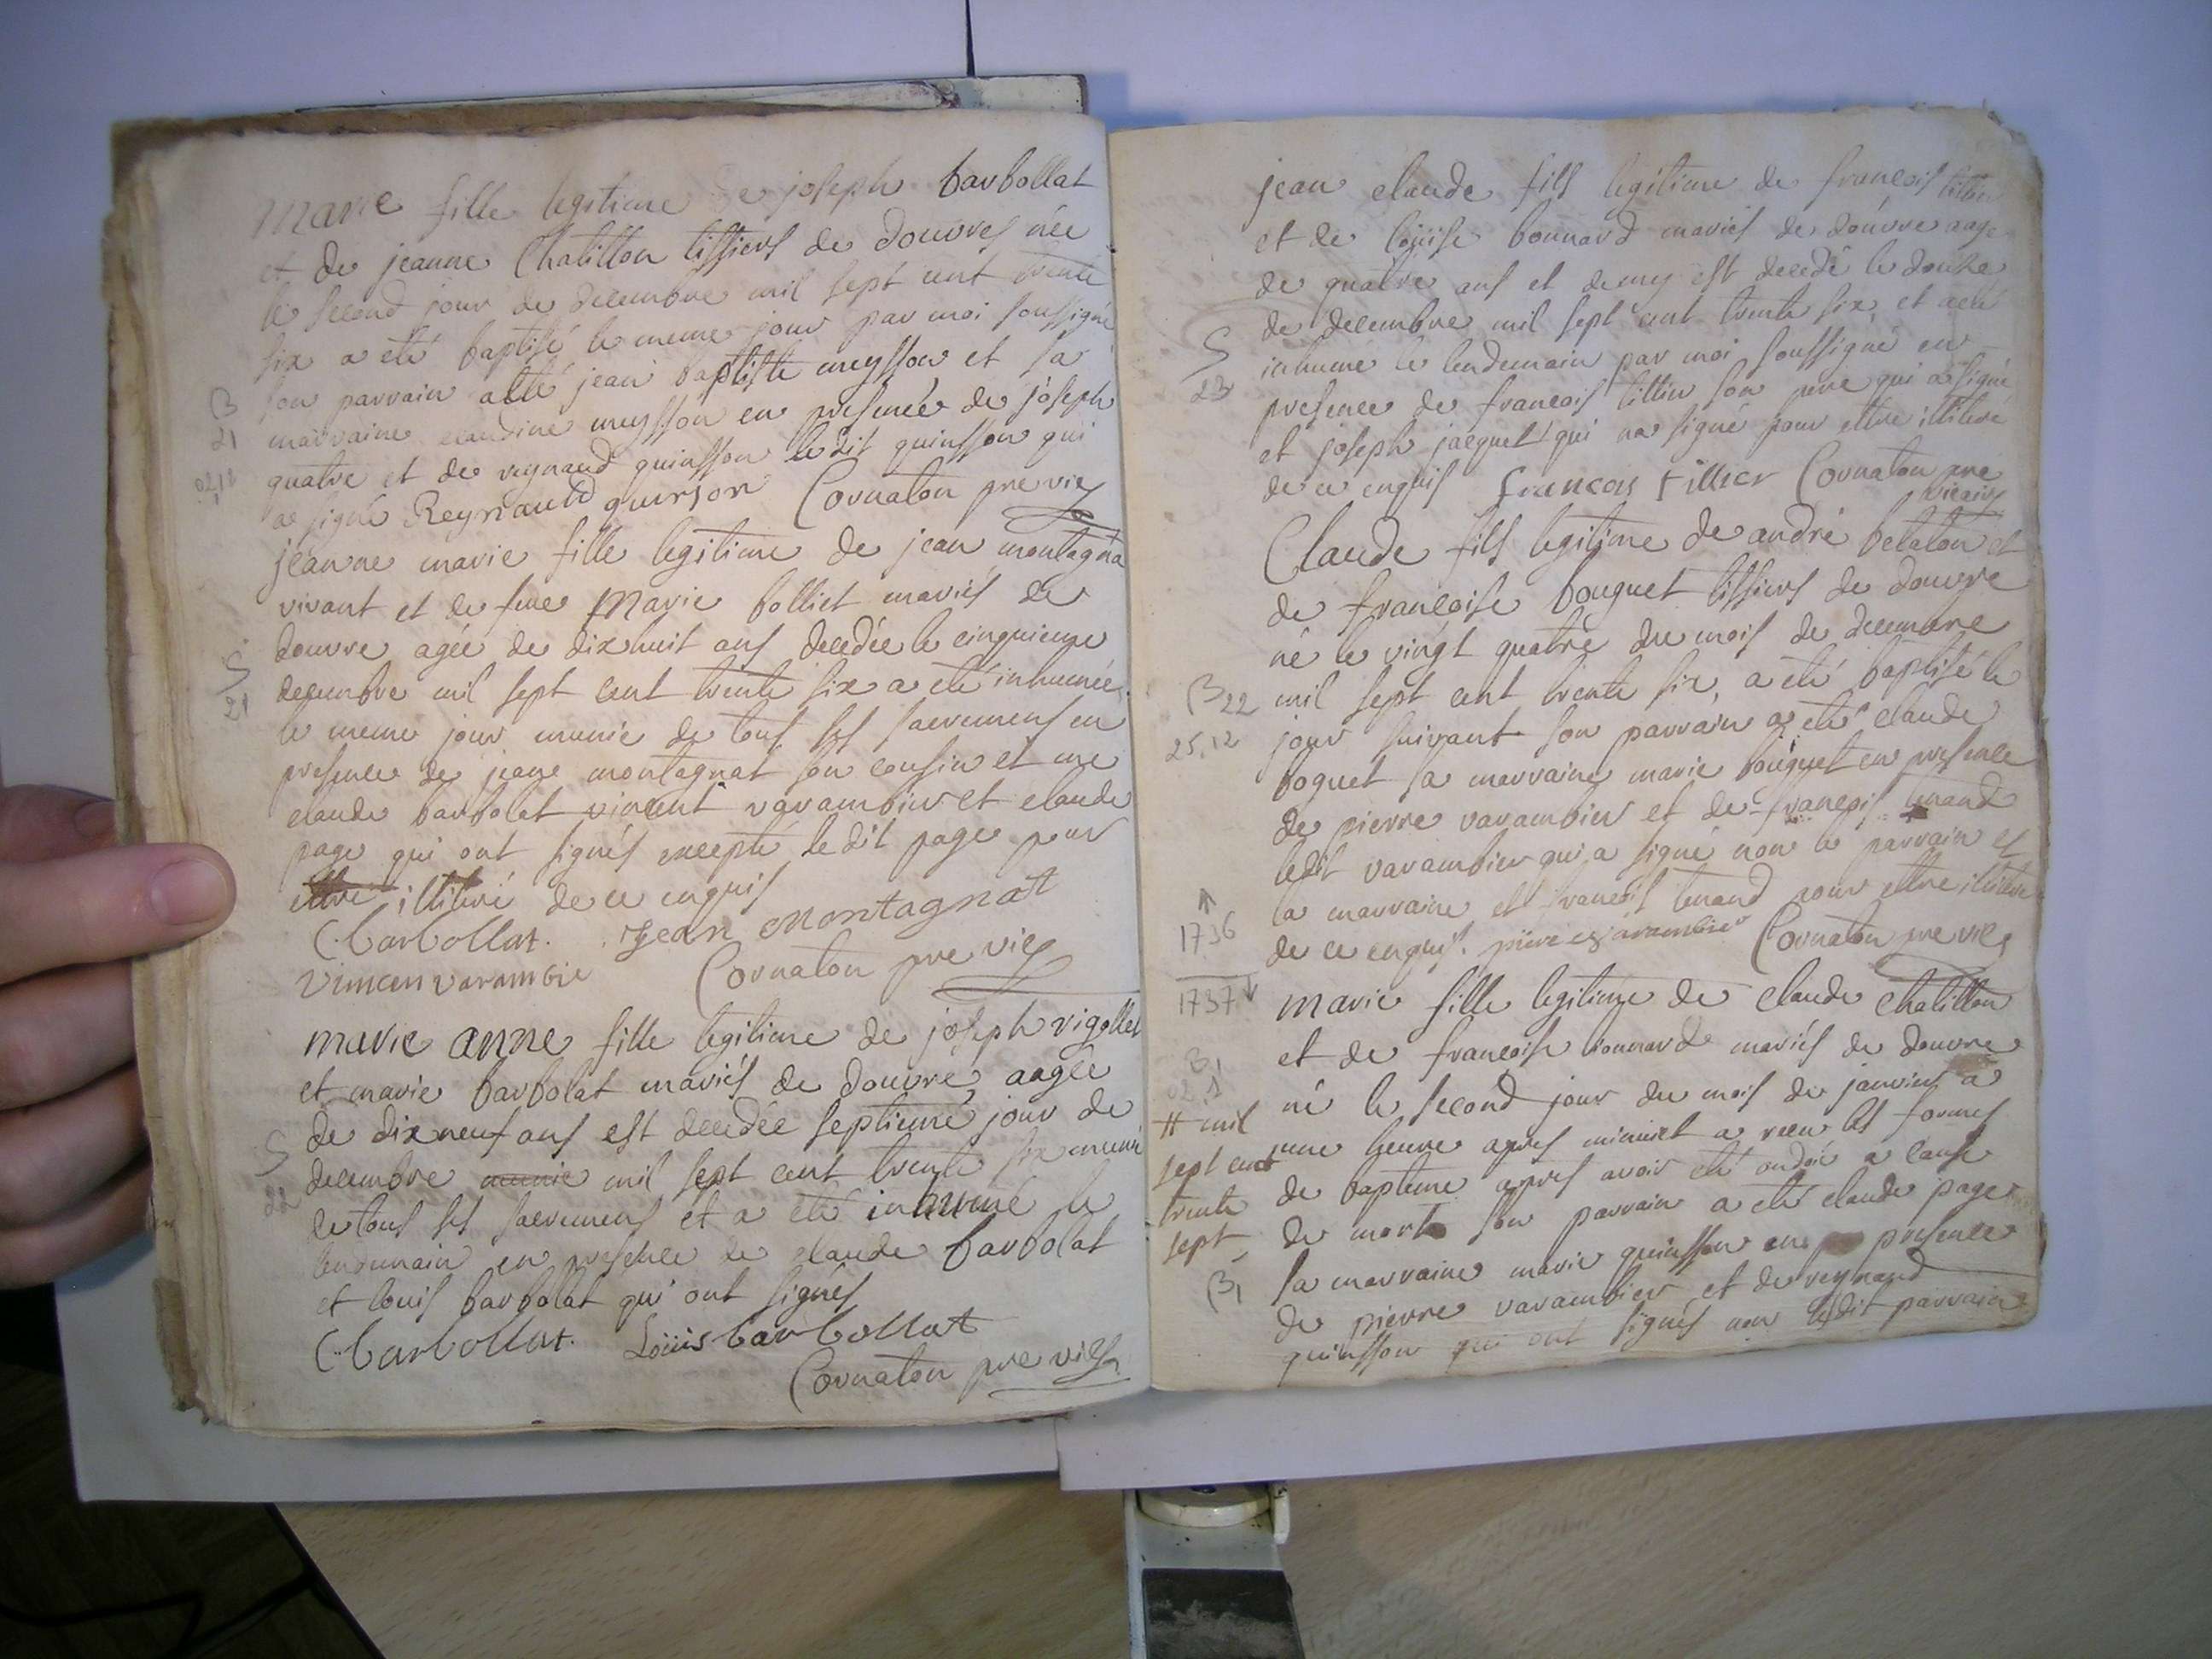 Marie fille legitime de joseph barbollat
et de jeanne Chatillon tissiers de douvres née
le second jour de decembre mil sept cent trente
six a eté baptisé le meme jour par moi soussigné
B
21
son parrain a eté jean baptiste meysson et sa
marraine claudine meysson en presence de joseph
quatre et de reynaud quinsson ledit quinsson qui
a signé Reynauld quinson Cornaton pre vic
jeanne marie fille legitime de jean montagna
vivant et de feue Marie bolliet mariés de
douvre agée de dixhuit ans decedée le cinquieme
S
21
decembre mil sept cent trente six a eté inhumée
le meme jour munie de tous ses sacremens en
presence de jean montagnat son cousin et me
claude barbolat vincent varambier et claude
page qui ont signés excepté ledit page pour
ettre illiteré de ce enquis
C. barbollat. jean montagnat
vincen varambie Cornaton pre vic
marie anne fille legitime de joseph vigollet
et marie barbolat mariés de douvre, aagée
de dixneuf ans est decedée septieme jour de
S
22
decembre munie mil sept cent trente six munie
de tous ses sacremens et a eté inhumé le
lendemain en presence de claude barbolat
et louis barbolat qui ont signés
C. barbollat. Loüis barbollat
Cornaton pre vic
jean claude fils legitime de francois tillier
et de loüise bonnard mariés de douvre aage
de quatre ans et demy est decedé le douze
de decembre mil sept cent trente six, et a eté
S
23
inhumé le lendemain par moi soussigné en
presence de francois tillier son pere qui a signé
et joseph jacquet qui na signé pour ettre illiteré
de ce enquis francois tillier Cornaton pre
vicaire
Claude fils legitime de andré belaton et
de francoise bouguet tissiers de douvre
né le vingt quatre du mois de decembre
B 22
25.12
mil sept cent trente six, a eté baptisé le
jour suivant son parrain a eté claude
boguet sa marraine marie bouguet en presence
de pierre varambier et de francois tenand
ledit varambier qui a signé non le parrain et
la marraine et francois tenand pour ettre illiteré
de ce enquis. piere varambier Cornaton pre vic
↑
1736
1737 ↓
marie fille legitime de claude Chatillon
et de francoise bonnard mariés de douvre
B1
02.1
né le second jour du mois de janvier a
# mil
sept cent
trente
sept
une heure apres minuict a receu les formes
de bapteme apres avoir eté ondoié a cause
de mort son parrain a eté claude page
sa marraine marie quinsson en presence
B1
de pierre varambier et de reynaud
quinsson qui ont signés non ledit parrain